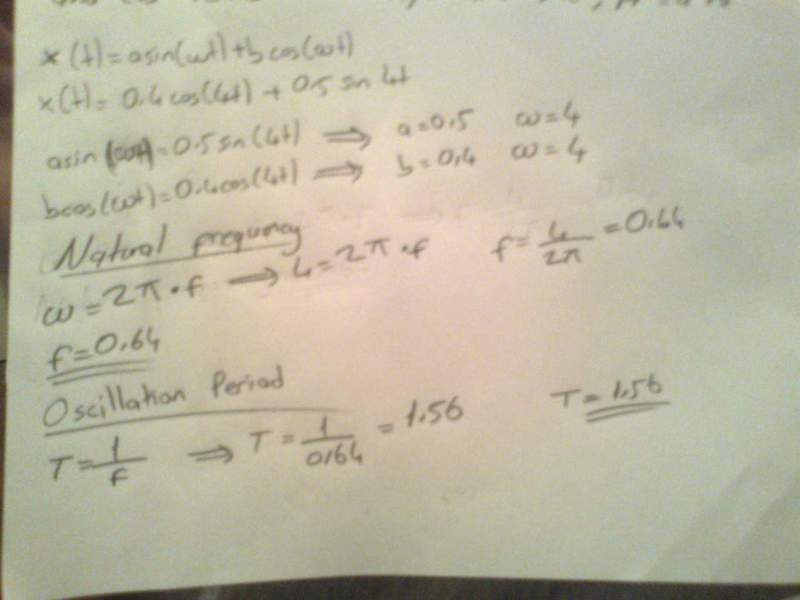 x(t)=asin(ωt)+bcos(ωt)
x(t)= 0.4cos(4t) + 0.5 sn 4t
asin(ωt)=0.5sn(4t) ⇒ a=0.5 ω=4
bcos(ωt)=0.4cos(4t) ⇒ b=0.4 ω=4
Natural frequncy
ω=2π•f → 4=2π•f f=4/2π=0.64
f=0.64
Oscillation Period
T=1/f ⇒ T=1/0.64 = 1.56 T=1.56